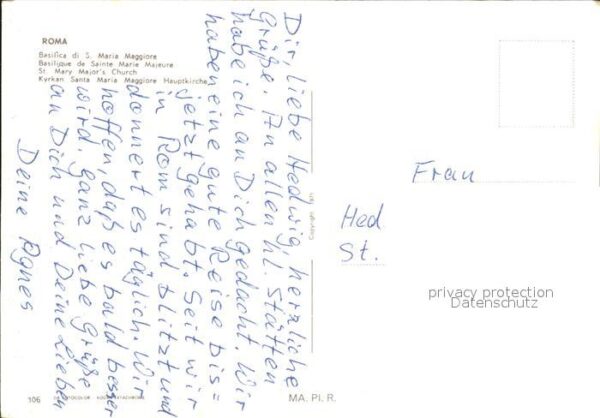 ROMA
Basilica di S. Maria Maggiore
Basilique de Sainte Marie Majeure
St. Mary Major's Church
Kyrkan Santa Maria Maggiore Hauptkirche
Dir, liebe Hedwig, herzliche
Grüße. An allen hl. Stätten
habe ich an Dich gedacht. Wir
haben eine gute Reise bis=
jetzt gehabt. Seit wir
in Rom sind blitzt und
donnert es täglich. Wir
hoffen, daß es bald besser
wird. Ganz liebe Grüße
an Dich und Deine Lieben
Deine Agnes
Copyright 1971
Frau
Hed
St.
privacy protection
Datenschutz
106
MA. PI. R.